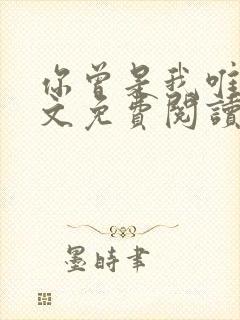 你曾是我唯
文免費閱讀
墨時書